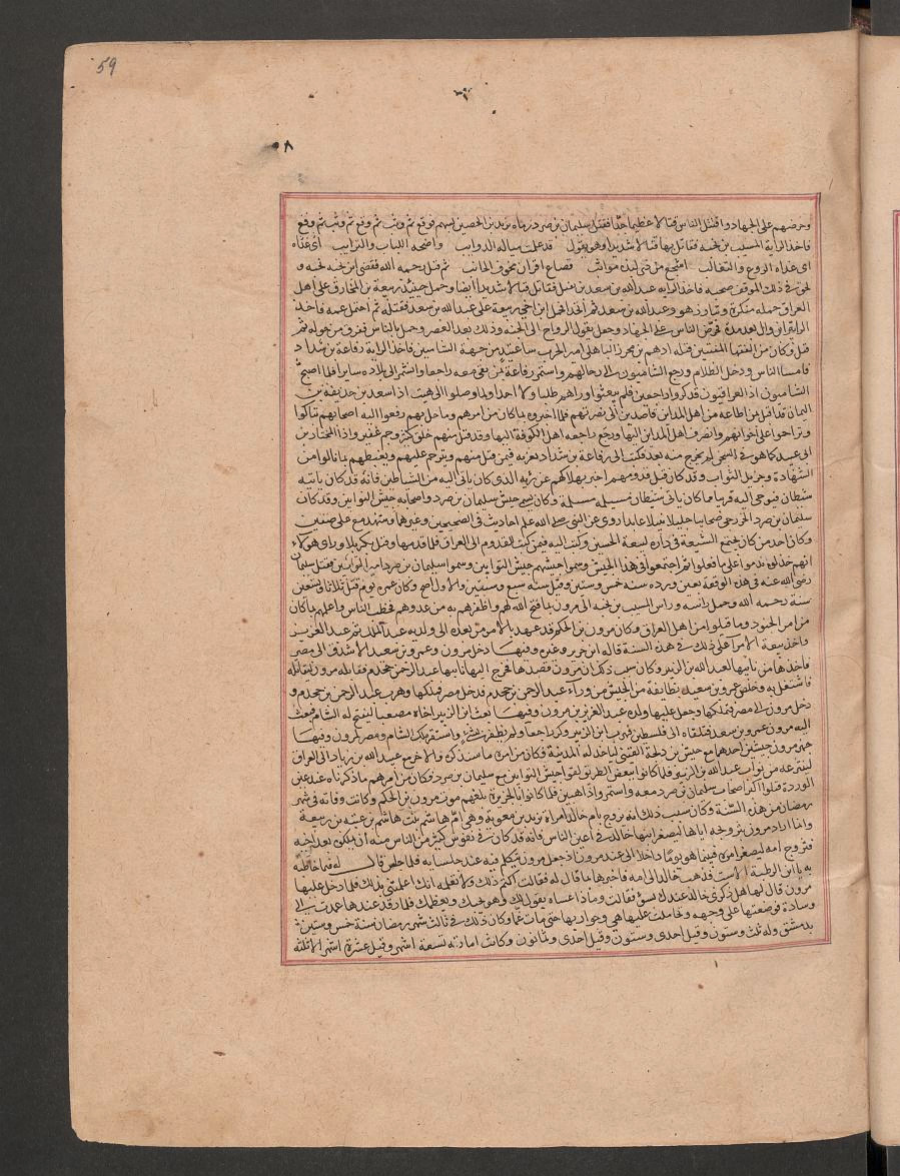 59
٥٨
وحرضهم على الجهاد واقتتل الناس قتالا عظيما جدا فقتل سليمان بن صرد رماه يزيد بن الحصين بسهم فوقع ثم وثب ثم وقع ثم وثب ثم وقع
فاخذ الراية المسيب بن نجبة فقاتل بها قتالا شديدا وهو يقول قد علمت ميالة الذوايب واضحه اللبات والترايب انى غداه
اى غداه الروع والتغالب اشجع من ذى لبد مواثب قصاع اقران مخوف الجانب ثم قتل رحمه الله فقضى ابن نجبه نحبه و
لحق فى ذلك الموقف صحبه فاخذ الرايه عبد الله بن سعد بن نفيل فقاتل قتالا شديدا ايضا وحمل حينئذ ربيعة بن المخارق على اهل
العراق حمله منكرة وتبارز هو وعبد الله بن سعد ثم اتحدا فحمل ابن اخى ربيعة على عبد الله بن سعد فقتله ثم احتمل عمه فاخذ
الراية عبد الله بن وال فحرض الناس على الجهاد وجعل يقول الرواح الى الجنه وذلك بعد العصر وحمل بالناس ففرق من حوله ثم
قتل وكان من الفقها المفتيين قتله ادهم بن محرز الباهلى امير الحرب ساعتئذ من جهة الشاميين فاخذ الراية رفاعة بن شداد
فامسا الناس ودخل الظلام ورجع الشاميون الى رحالهم واستمر رفاعة بمن بقى معه راجعا وانشمر الى بلاده سايرا فلما اصبح
الشاميون اذ العراقيون قد كروا راجعين فلم يبعثوا وراهم طلبا ولا احدا ولما وصلوا الى هيت اذا سعد بن حذيفة بن
اليمان قد اقبل بمن اطاعه من اهل المداين قاصدين الى نصرتهم فلما اخبروه بما كان من امرهم وما حل بهم رفعوا اليه اصحابهم تباكوا
وتراحموا على اخوانهم وانصرف اهل المداين اليها ورجع راجعه اهل الكوفة اليها وقد قتل منهم خلق كثير وجم غفير واذا المختار بن
ابى عبيد كما هو فى السجن لم يخرج منه بعد فكتب الى رفاعة بن شداد يعزيه فيمن قتل منهم ويترحم عليهم ويغبطهم بما نالوا من
الشهادة وجزيل الثواب وقد كان قبل قدومهم اخبر بهلاكهم عن ربه الذى كان ياتى اليه من الشياطين فانه قد كان ياتيه
شيطان فيوحى اليه قريبا مما كان ياتى شيطان مسيلمه وكان جيش سليمان بن صرد واصحابه جيش التوابين وقد كان
سليمان بن صرد الخزرجى صحابيا جليلا نبيلا عابدا روى عن النبى صلى الله عليه احاديث فى الصحيحين وغيرهما وشهد مع على صفين
وكان احد من كان يجتمع الشيعة فى داره لبيعة الحسين وكتب اليه فيمن كتب القدوم الى العراق فلما قدمها وقتل بكربلا وراى هولاء
انهم خذلوه ندموا على ما فعلوا ثم اجتمعوا فى هذا الجيش وسموا جيشهم جيش التوابين وسموا سليمان بن صرد امير التوابين فقتل سليمان
رضى الله عنه فى هذه الوقعة بعين ورده سنه خمس وستين وقيل سنه سبع وستين والاول اصح وكان عمره يوم قتل ثلاثا وتسعين
سنة رحمه الله وحمل راسه وراس المسيب بن نجبه الى مرون بما فتح الله لهم واظفرهم به من عدوهم فخطب الناس واعلمهم بما كان
من امر الجنود وما قتلوا من اهل العراق وكان مرون بن الحكم قد عهد بالامر من بعده الى ولديه عبد الملك ثم عبد العزيز
واخذ بيعة الامرآ على ذلك فى هذه السنة قاله ابن جرير وغيره وفيها دخل مرون وعمرو بن سعيد الاشدق الى مصر
فاخذها من نايبها لعبد الله بن الزبير وكان سبب ذلك ان مرون قصدها فخرج اليها نايبها عبد الرحمن بن جحدم فقابله مرون ليقاتله
فاشتغل به وخلص عمرو بن سعيد بطايفة من الجيش من ورآء عبد الرحمن بن جحدم فدخل مصر فملكها وهرب عبد الرحمن بن جحدم و
دخل مرون الى مصر فتملكها وجعل عليها ولده عبد العزيز بن مرون وفيها بعث ابن الزبير اخاه مصعبا ليفتح له الشام فبعث
اليه مرون عمرو بن سعيد فتلقاه الى فلسطين فهرب ابن الزبير وكر راجعا ولم يظفر بشئ واستقر ملك الشام ومصر لمرون وفيها
جهز مرون جيشين احدهما مع حبيش بن دلجة القينى لياخذ له المدينة فكان من امره ما سنذكره والاخر مع عبيد الله بن زياد الى العراق
لينتزعه من نواب عبد الله بن الزبير فلما كانوا ببعض الطريق لقوا جيش التوابين مع سليمان بن صرد فكان من امرهم ما ذكرناه عند عين
الوردة قتلوا اكثر اصحاب سليمان بن صرد معه واستمروا ذاهبين فلما كانوا بالجزيرة بلغهم موت مرون بن الحكم وكانت وفاته فى شهر
رمضان من هذه السنة وكان سبب ذلك انه تزوج بام خالد امراة يزيد بن معوية وهى ام هاشم بنت هاشم بن عتبه بن ربيعة
وانما اراد مرون بتزوجه اياها ليصغر ابنها خالد فى اعين الناس فانه قد كان فى نفوس كثير من الناس منه ان يملكوه بعد اخيه
فتزوج امه ليصغر امره فبينما هو يوما داخلا الى عند مرون اذ جعل مرون يتكلم فيه عند جلسايه فلما جلس قال له فيما خاطبه
به يا ابن الرطبة الاست فذهب خالد الى امه فاخبرها بما قال له فقالت اكتم ذلك ولا تعلمه انك اعلمتنى بذلك فلما دخل عليها
مرون قال لها هل ذكرنى خالد عندك بسوء فقالت وماذا عساه يقول لك وهو يحبك ويعظمك فلما رقد عندها عمدت الى
وسادة فوضعتها على وجهه وتحاملت عليها هى وجواريها حتى مات غما وكان ذلك فى ثالث شهر رمضان سنة خمس وستين
بدمشق وله ثلث وستون وقيل احدى وستون وقيل احدى وثمانون وكانت امارته تسعة اشهر وقيل عشرة اشهر الا ثلثه